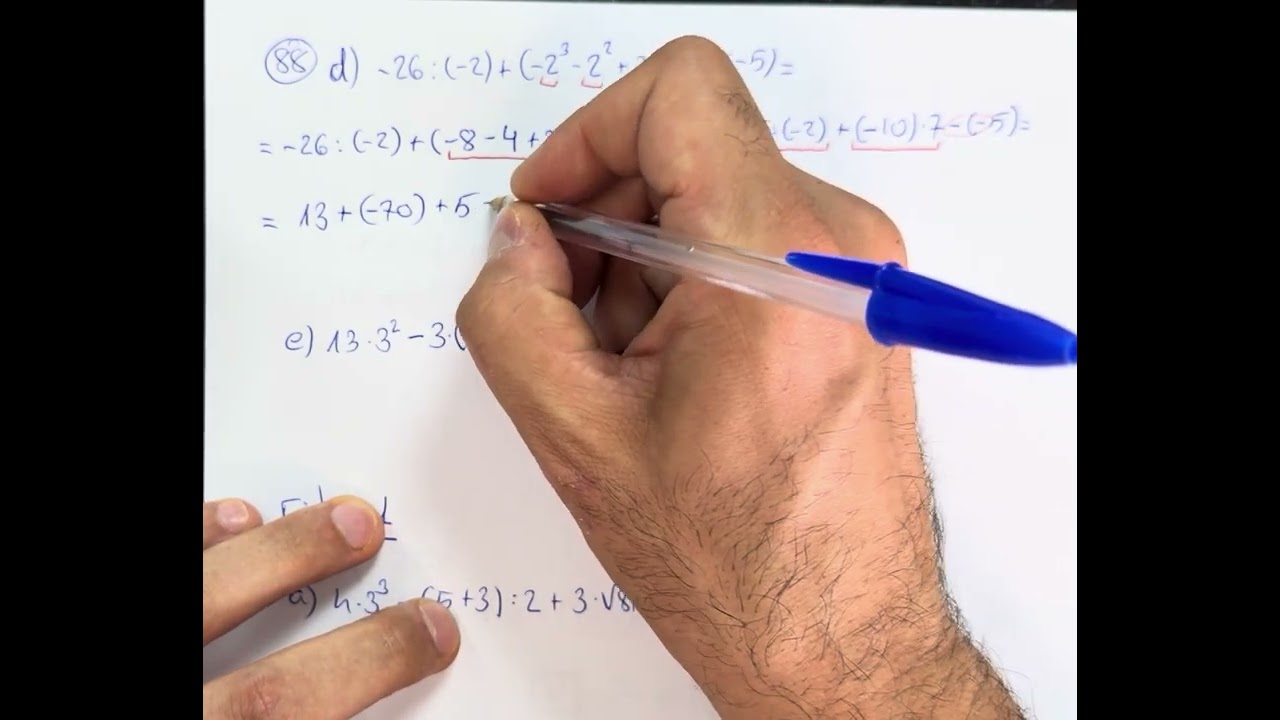 88 d) -26 : (-2) + (-2³ - 2² + -5) =
= -26 : (-2) + (-8 - 4 + : (-2) + (-10) · 7 - (-5) =
= 13 + (-70) + 5
e) 13 · 3² - 3 · (
a) 4 · 3³ - (5 + 3) : 2 + 3 · √8